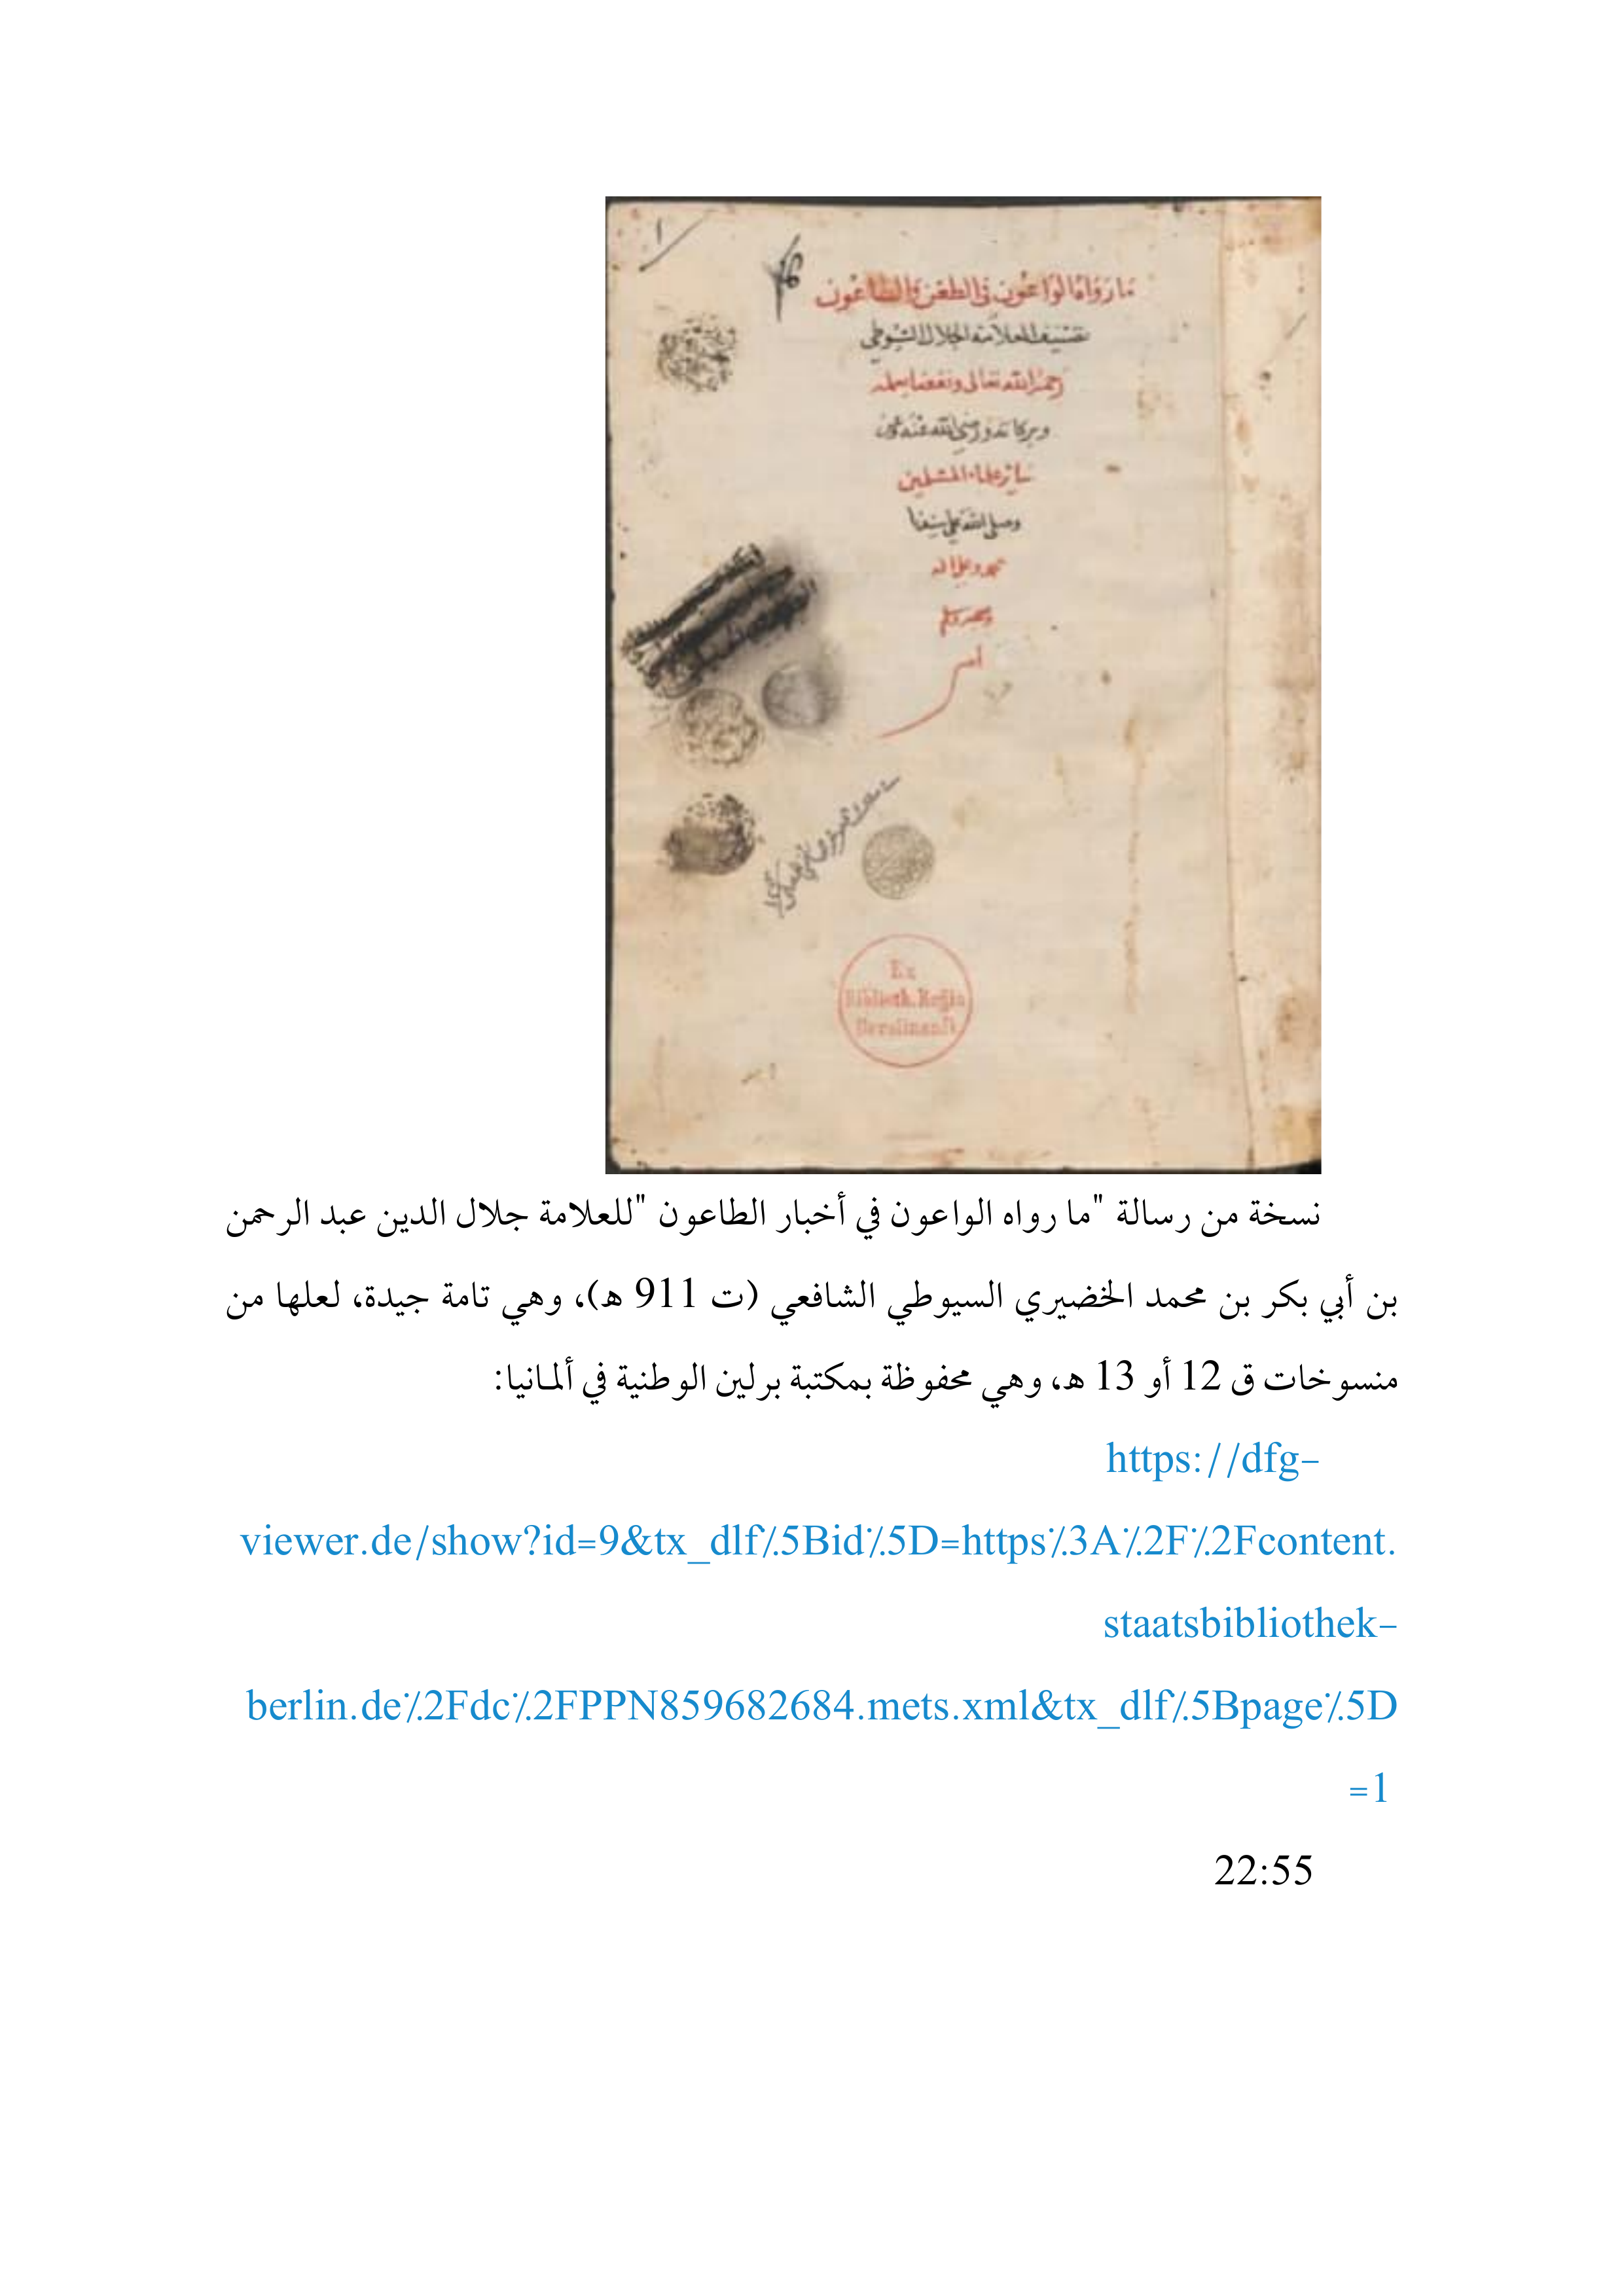 ما رواه الواعون في الطعن والطاعون
تصنيف العلامة الجلال السيوطي
رحمه الله تعالى ونفعنا بعلمه
وبركاته ورضي الله عنه وعن
ساير علماء المسلمين
وصلى الله على سيدنا
محمد وعلى اله
وصحبه وسلم
امين
Ex
Biblioth. Regia
Berolinensi
نسخة من رسالة "ما رواه الواعون في أخبار الطاعون "للعلامة جلال الدين عبد الرحمن
بن أبي بكر بن محمد الخضيري السيوطي الشافعي (ت 911 هـ)، وهي تامة جيدة، لعلها من
منسوخات ق 12 أو 13 هـ، وهي محفوظة بمكتبة برلين الوطنية في ألمانيا:
https://dfg-
viewer.de/show?id=9&tx_dlf٪5Bid٪5D=https٪3A٪2F٪2Fcontent.
staatsbibliothek-
berlin.de٪2Fdc٪2FPPN859682684.mets.xml&tx_dlf٪5Bpage٪5D
=1
22:55